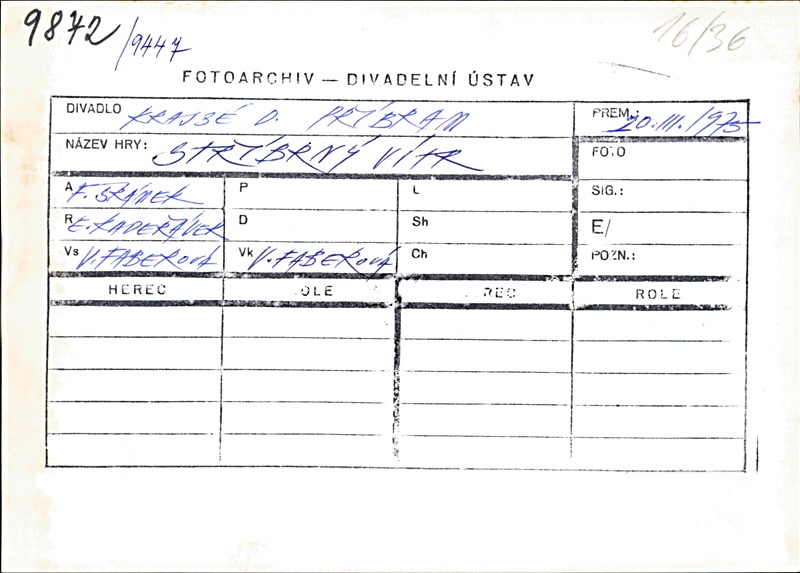 9872 /9447
16/36
FOTOARCHIV — DIVADELNÍ ÚSTAV
DIVADLO KRAJSÉ D. PŘÍBRAM
PREM.: 20.III.1975
NÁZEV HRY: STŘÍBRNÝ VÍTR
FOTO
A F. ŠRÁMEK
P
L
SIG.:
R E. KADEŘÁVEK
D
Sh
E/
Vs V. FABEROVÁ
Vk V. FABEROVÁ
Ch
POZN.:
HEREC OLE REC ROLE